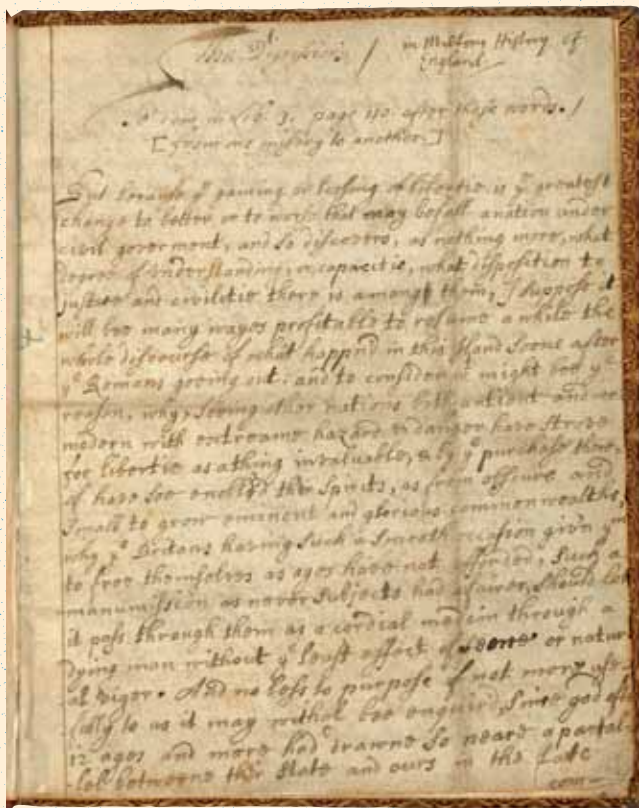 The Digression / in Miltons History of
England.
To com in Lib. 3. page 110. after these words. /
[from one misery to another.]
But because yᵉ gaining or loosing of libertie is yᵉ greatest
change to better or to worse that may befall a nation under
civil goverment, and so discovers, as nothing more, what
degree of understanding, or capacitie, what disposition to
justice and civilitie there is among them, I suppose it
will bee many wayes profitable to resume a while the
whole discourse of what happn'd in this Iland soone after
yᵉ Romans goeing out: and to consider what might bee yᵉ
reason, why, seeing other nations both antient and
modern with extreame hazard & danger have strove
for libertie as a thing invaluable, & by yᵉ purchase there-
of have soe enobl'd thir spirits, as from obscure and
small to grow eminent and glorious commonwealths,
why yᵉ Britans having such a smooth occasion giv'n yᵐ
to free themselves as ages have not afforded, such a
manumission as never subjects had a fairer, should let
it pass through them as a cordial medcin through a
dying man without yᵉ least effect of sence or natur-
al vigor. And no less to purpose if not more use-
fully to us it may withal bee enquir'd, since god after
12 ages and more had drawne so neare a paral-
lel betweene thir state and ours in the late
com-